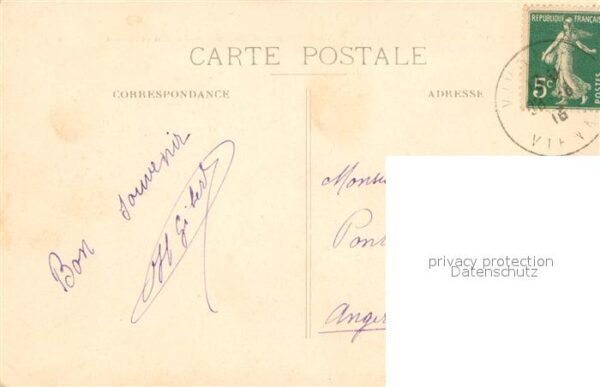 CARTE POSTALE
CORRESPONDANCE
ADRESSE
REPUBLIQUE FRANÇAISE
5c
POSTES
16
VIENNE
Bon souvenir
Gibert
Monsi
Pont
Anger
privacy protection
Datenschutz